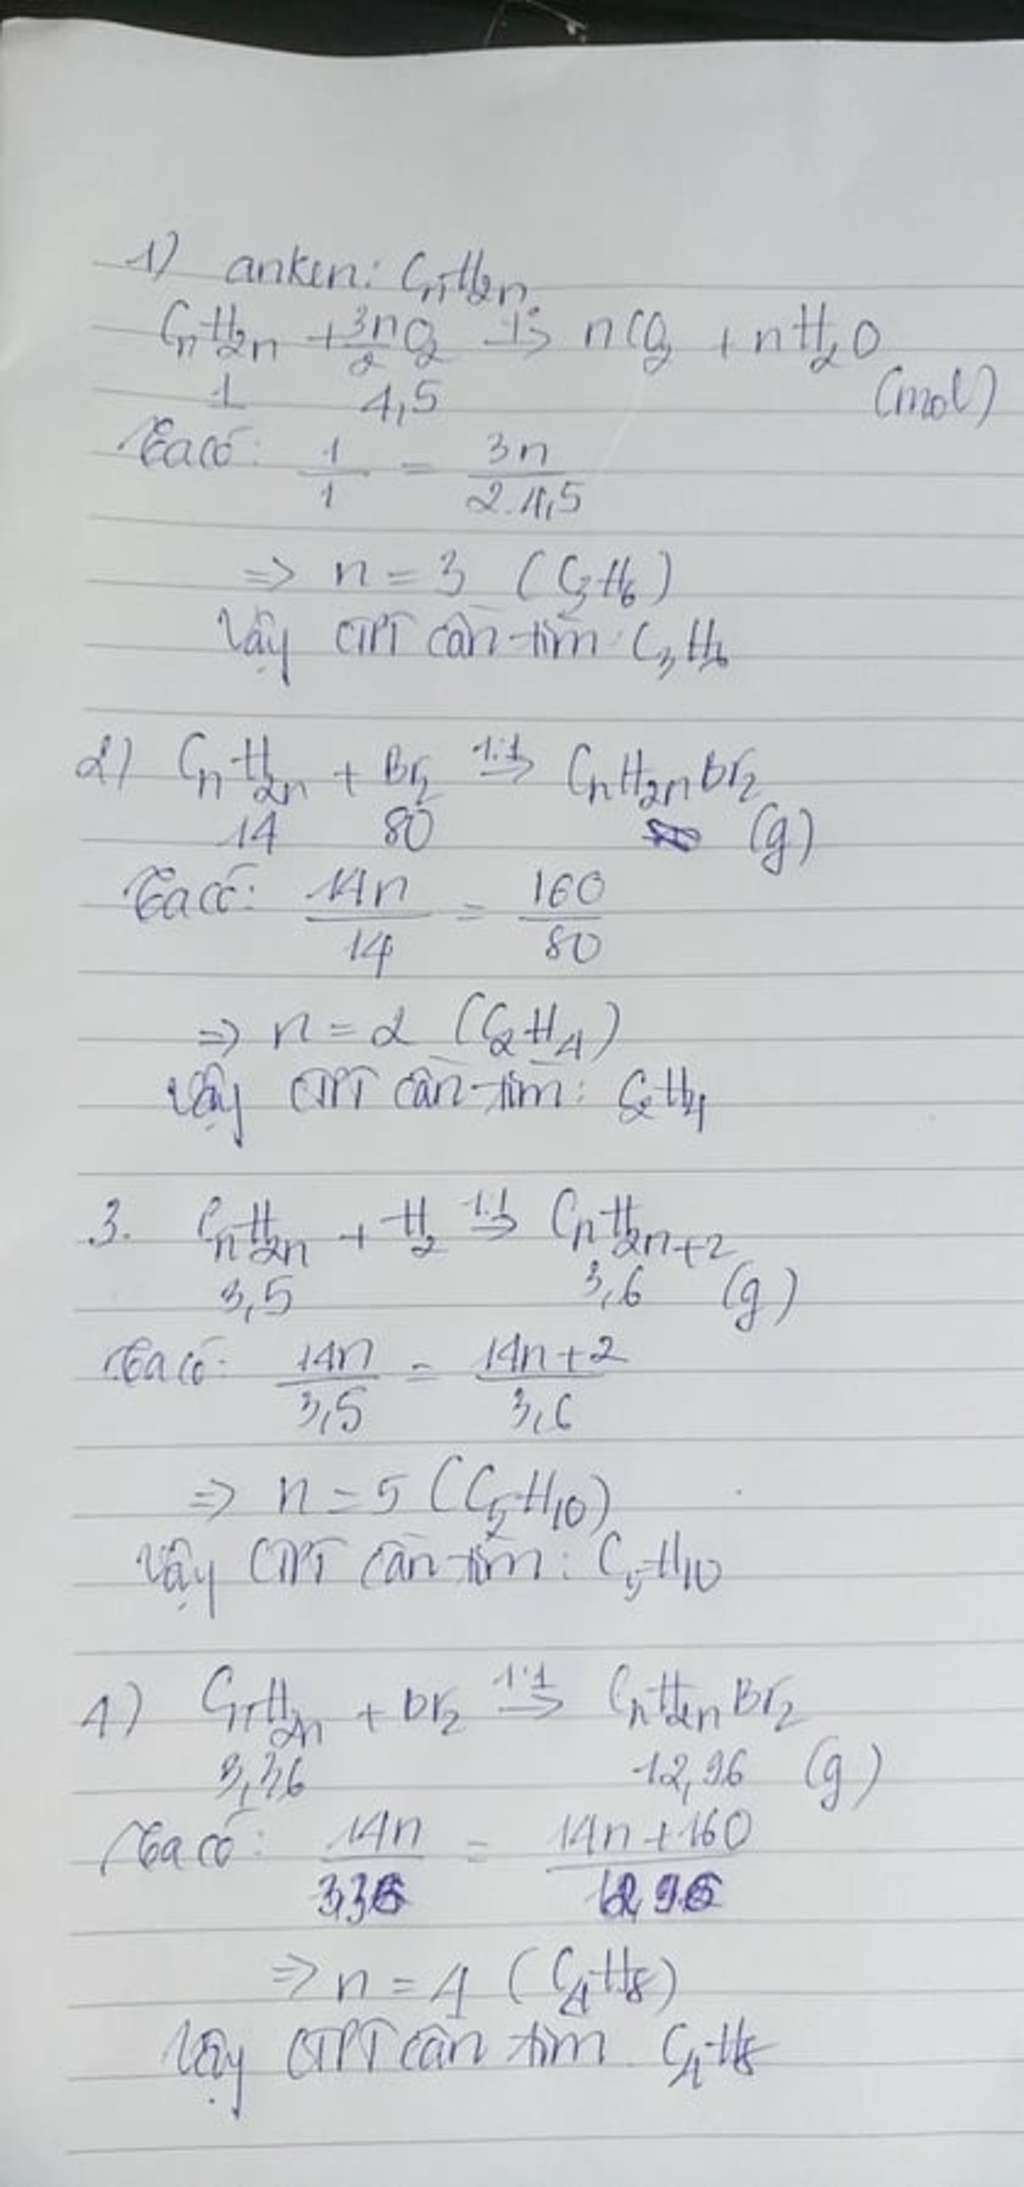 1) anken: CnH2n
CnH2n + 3n/2 O2 t°→ nCO2 + nH2O
1 4,5 (mol)
Ta có: 1/1 = 3n/2.4,5
⇒ n = 3 (C3H6)
Vậy CTPT cần tìm: C3H6
2) CnH2n + Br2 1:1→ CnH2nBr2
14 80 (g)
Ta có: 14n/14 = 160/80
⇒ n = 2 (C2H4)
Vậy CTPT cần tìm: C2H4
3. CnH2n + H2 1:1→ CnH2n+2
3,5 3,6 (g)
Ta có: 14n/3,5 = 14n+2/3,6
⇒ n = 5 (C5H10)
Vậy CTPT cần tìm: C5H10
4) CnH2n + Br2 1:1→ CnH2nBr2
3,36 12,96 (g)
Ta có: 14n/3,36 = 14n+160/12,96
⇒ n = 4 (C4H8)
Vậy CTPT cần tìm C4H8